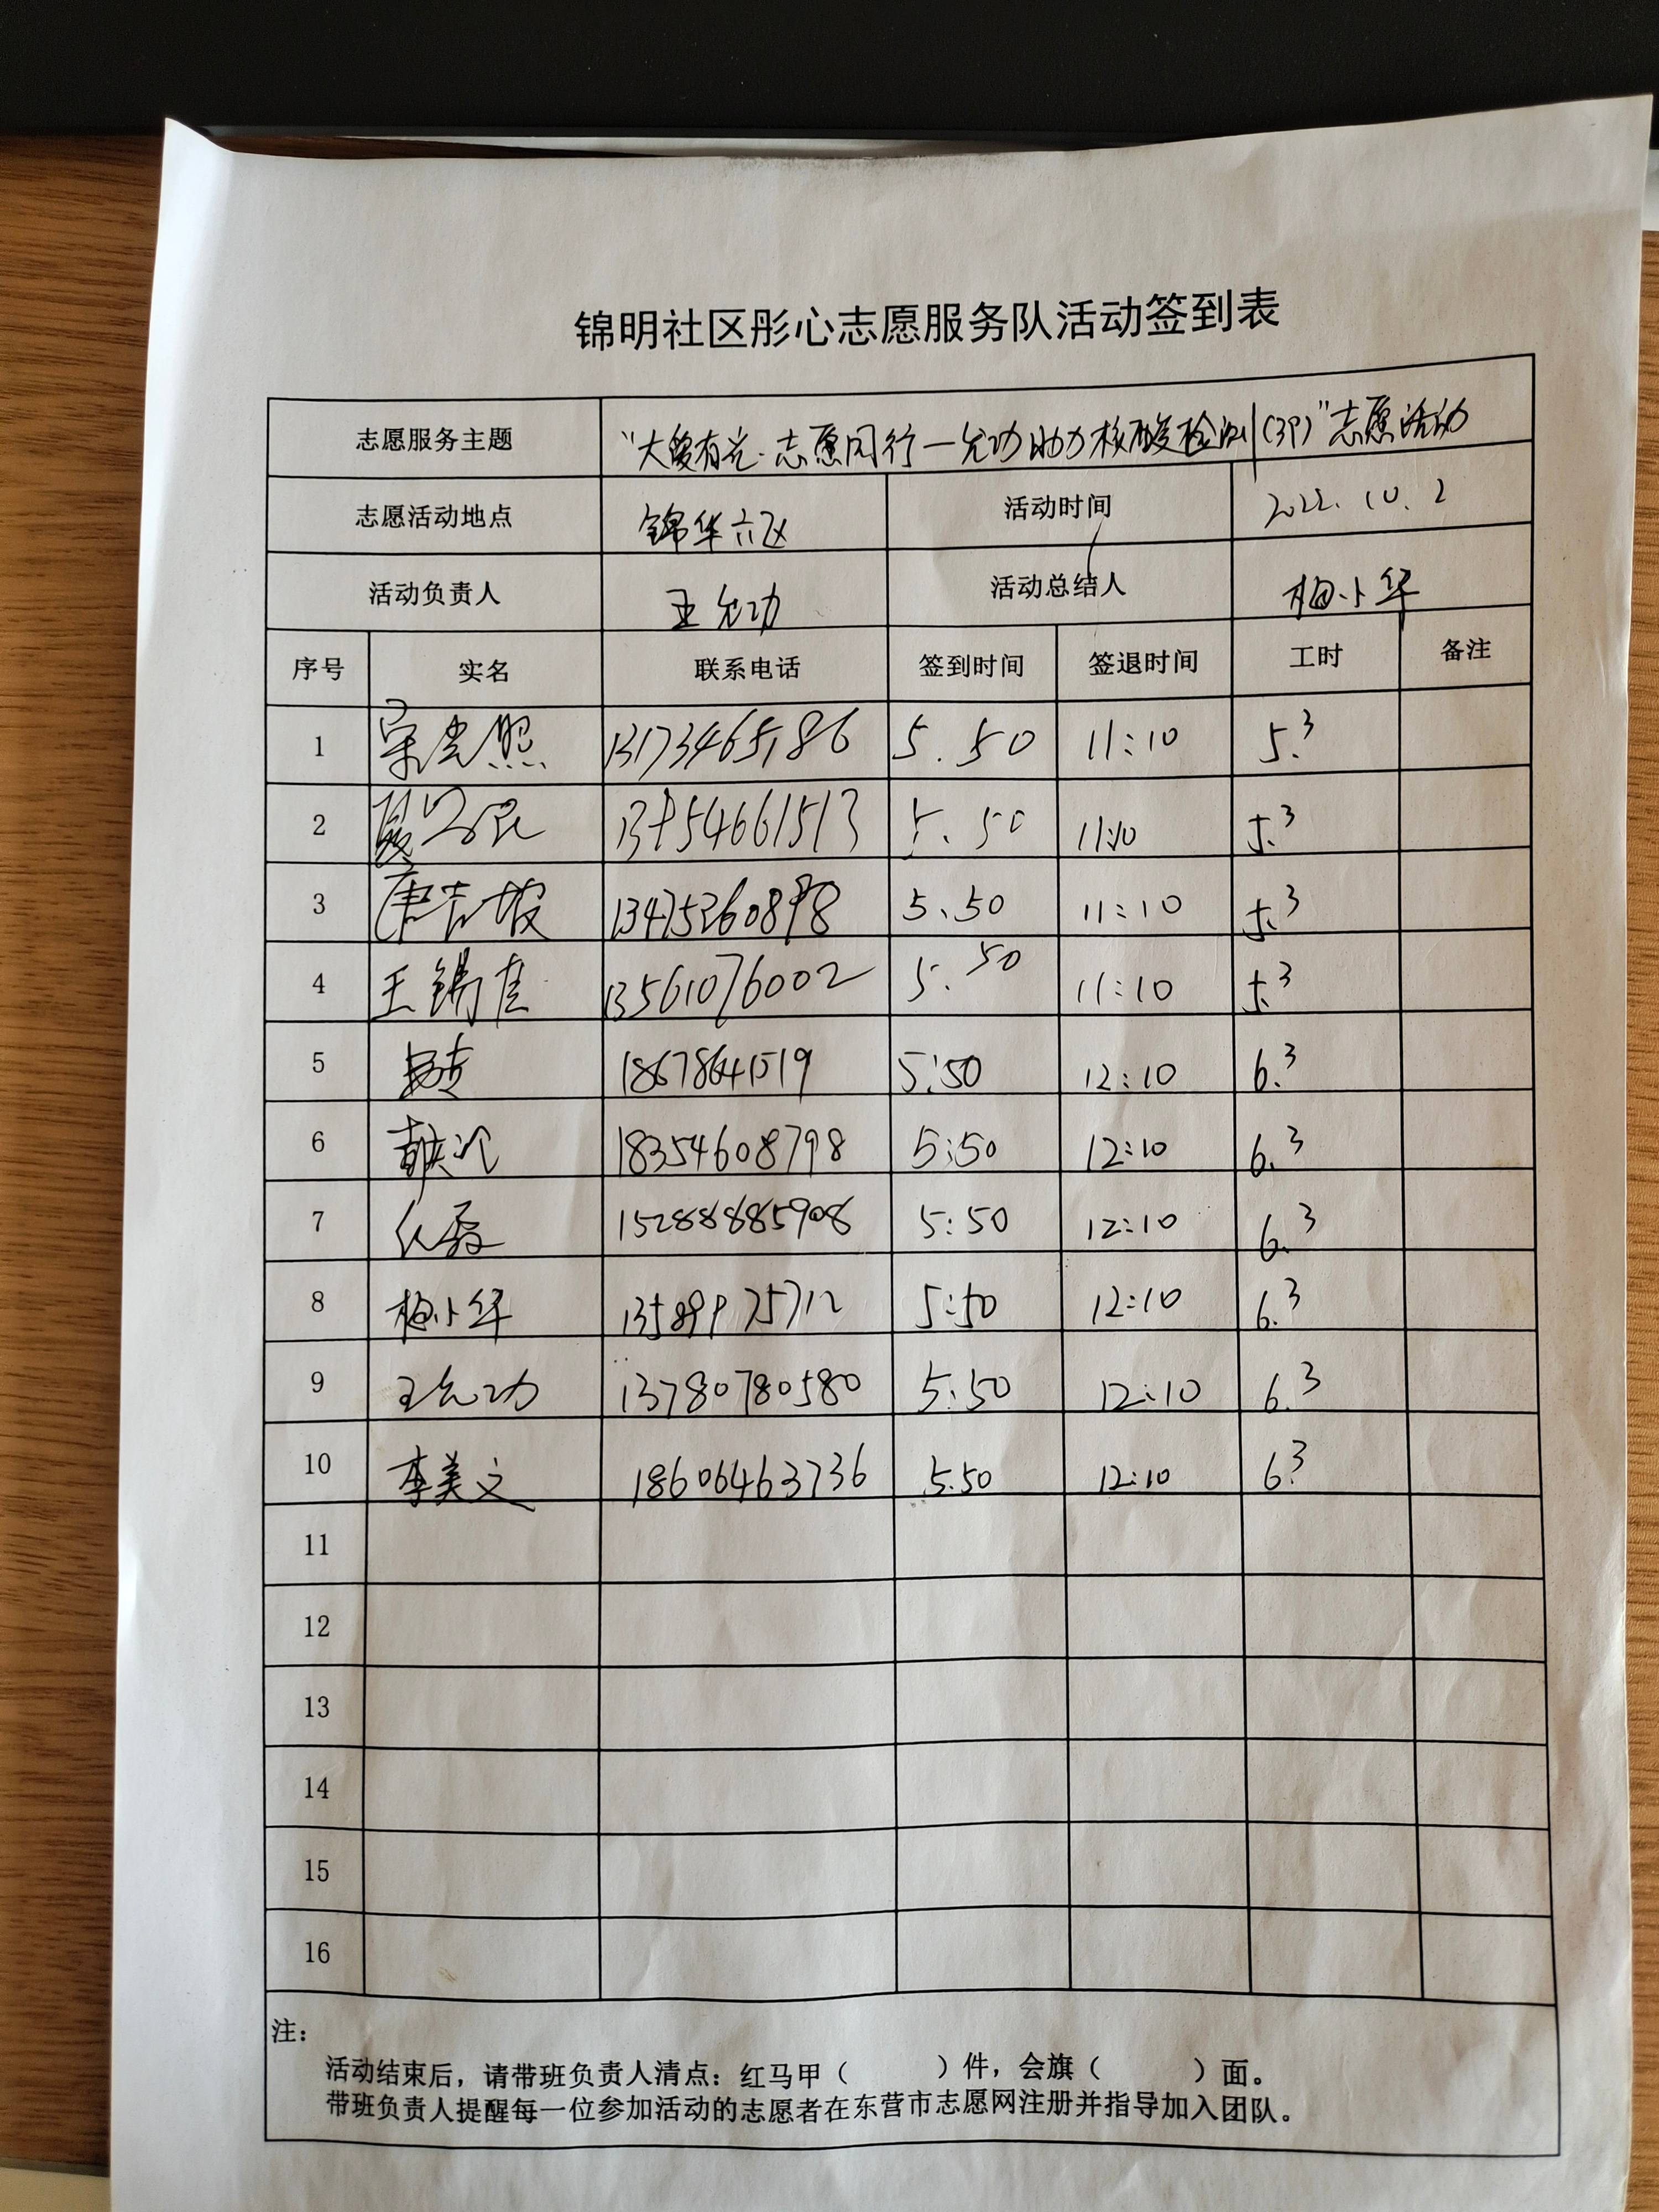 锦明社区彤心志愿服务队活动签到表
志愿服务主题 "大爱有光·志愿同行—允功助力核酸检测(39)"志愿活动
志愿活动地点 锦华六区 活动时间 2022.10.2
活动负责人 王允功 活动总结人 梅小华
序号 实名 联系电话 签到时间 签退时间 工时 备注
1 宋光照 13173465186 5.50 11:10 5.3
2 13954661513 5.50 11:10 5.3
3 唐吉坡 13475260898 5.50 11:10 5.3
4 王锡贵 13561076002 5.50 11:10 5.3
5 18678641519 5:50 12:10 6.3
6 18354608798 5:50 12:10 6.3
7 5:50 12:10 6.3
8 梅小华 13589975712 5:50 12:10 6.3
9 王允功 13780780580 5:50 12:10 6.3
10 李美文 18606463736 5:50 12:10 6.3
11
12
13
14
15
16
注：
活动结束后，请带班负责人清点：红马甲（ ）件，会旗（ ）面。
带班负责人提醒每一位参加活动的志愿者在东营市志愿网注册并指导加入团队。